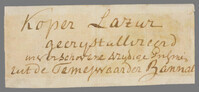 Koper Lazur
gecrystalliseerd
met
uit de Temeswaarder Bannat